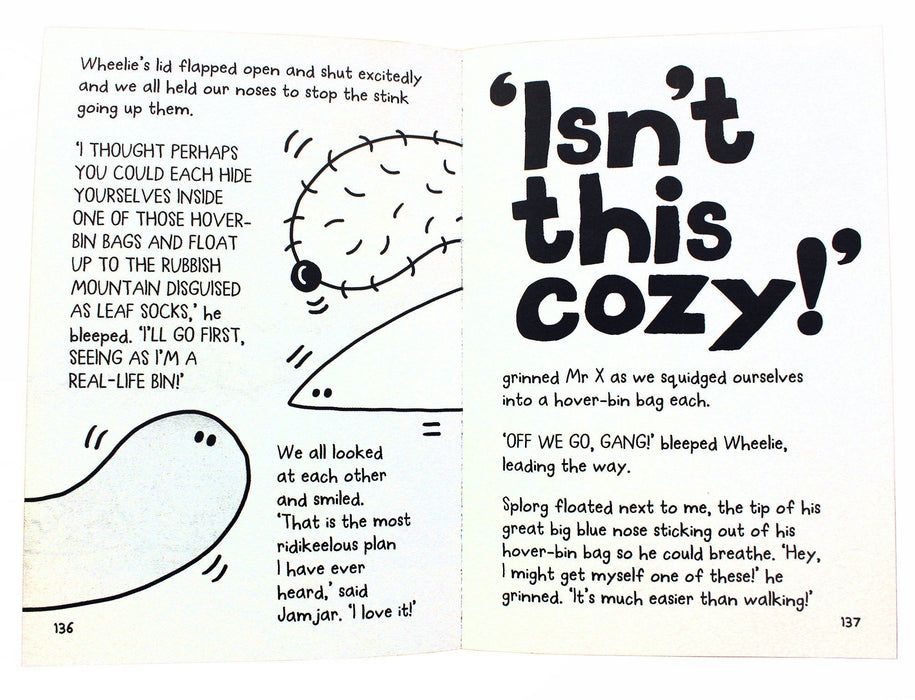 Wheelie's lid flapped open and shut excitedly
and we all held our noses to stop the stink
going up them.
'I THOUGHT PERHAPS
YOU COULD EACH HIDE
YOURSELVES INSIDE
ONE OF THOSE HOVER-
BIN BAGS AND FLOAT
UP TO THE RUBBISH
MOUNTAIN DISGUISED
AS LEAF SOCKS,' he
bleeped. 'I'LL GO FIRST,
SEEING AS I'M A
REAL-LIFE BIN!'
We all looked
at each other
and smiled.
'That is the most
ridikeelous plan
I have ever
heard,' said
Jamjar. 'I love it!'
136
'Isn't
this
cozy!'
grinned Mr X as we squidged ourselves
into a hover-bin bag each.
'OFF WE GO, GANG!' bleeped Wheelie,
leading the way.
Splorg floated next to me, the tip of his
great big blue nose sticking out of his
hover-bin bag so he could breathe. 'Hey,
I might get myself one of these!' he
grinned. 'It's much easier than walking!'
137